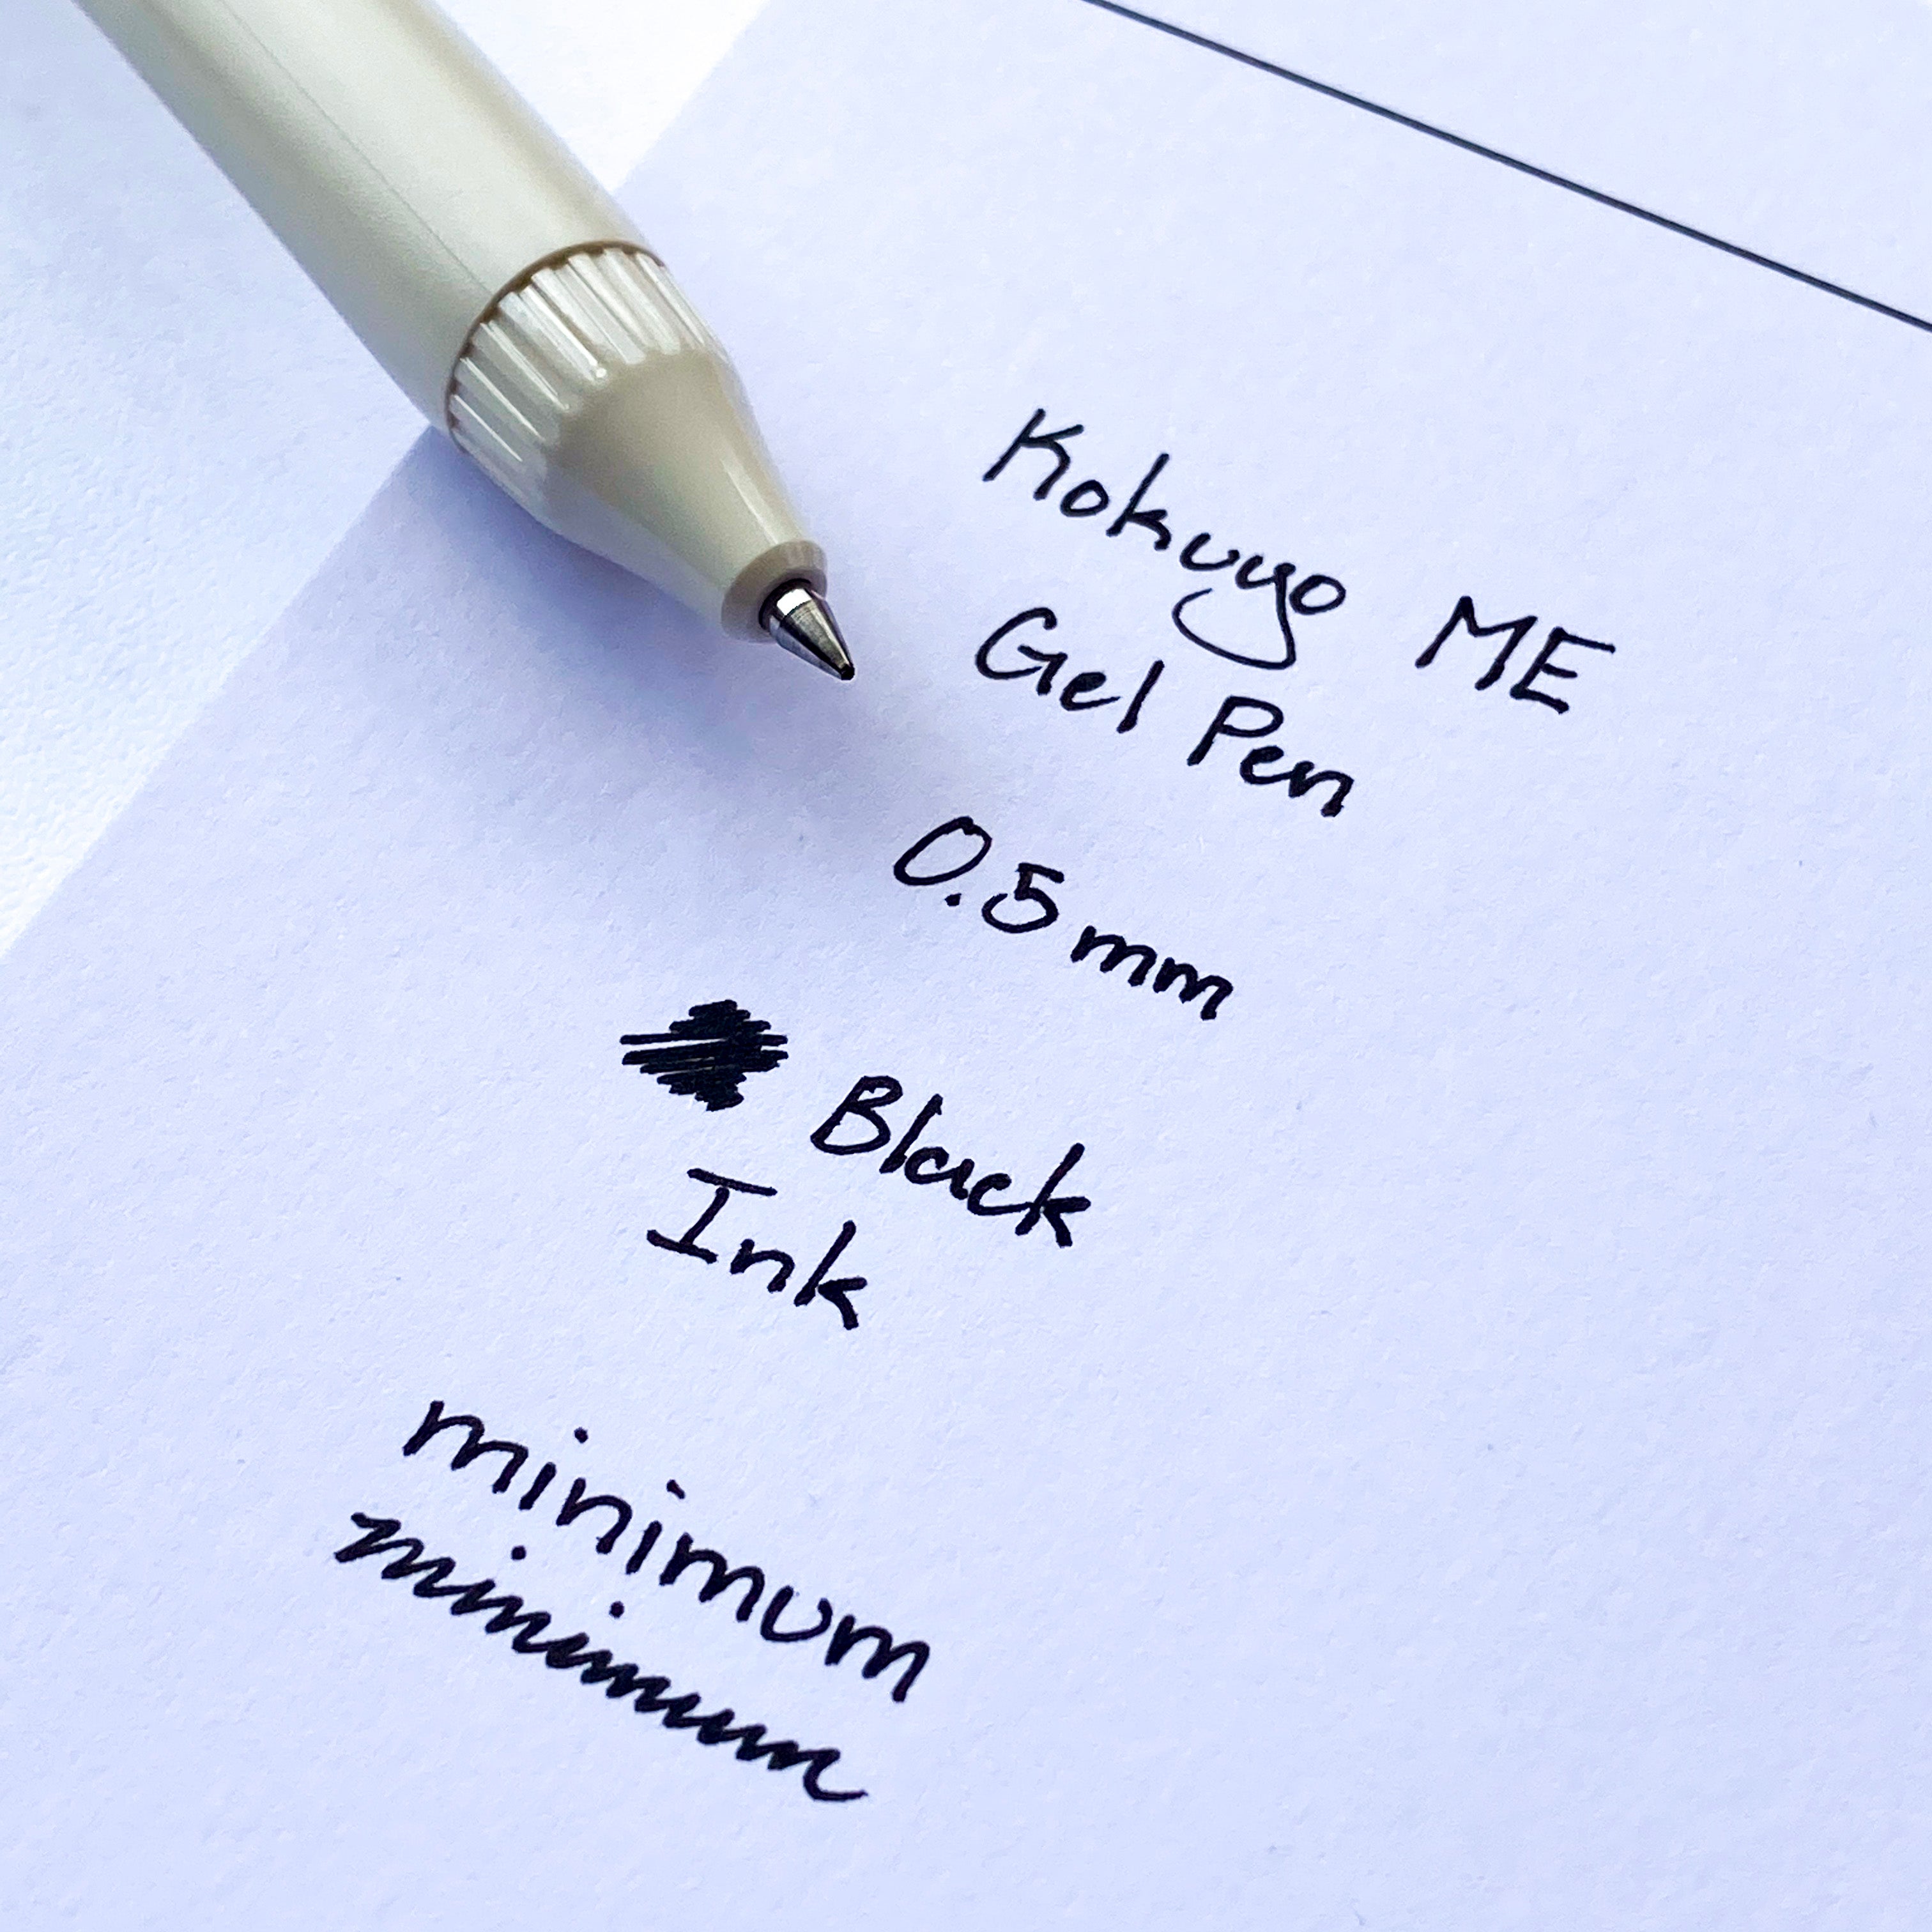 Kokuyo ME
Gel Pen
0.5 mm
Black
Ink
minimum
minimum